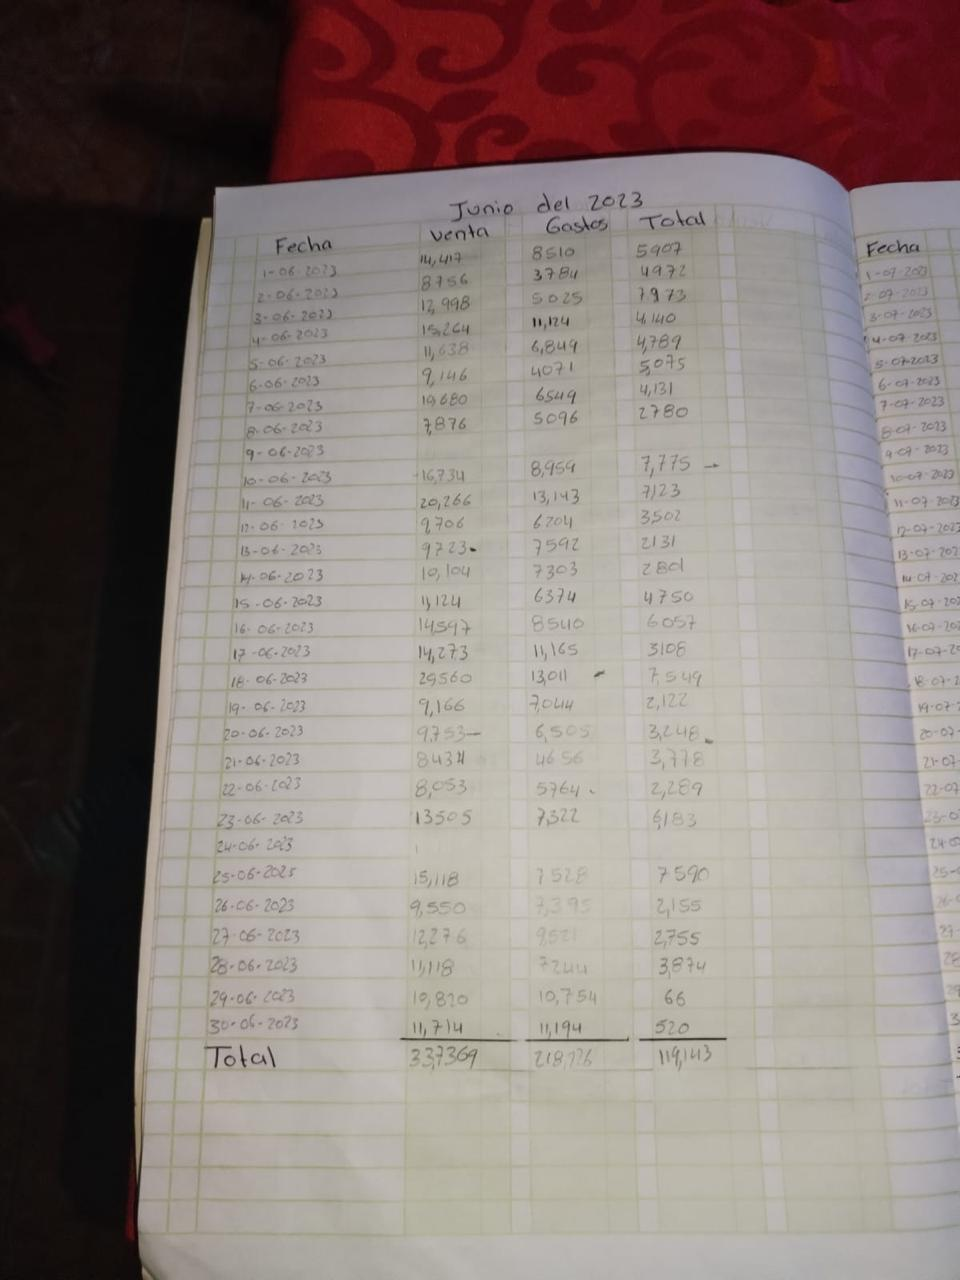 Junio del 2023
Fecha venta Gastos Total
1-06-2023 14,417 8510 5907
2-06-2023 8756 3784 4972
3-06-2023 12,998 5025 7973
4-06-2023 15,264 11,124 4,140
5-06-2023 11,638 6,849 4,789
6-06-2023 9,146 4071 5,075
7-06-2023 10,680 6549 4,131
8-06-2023 7,876 5096 2780
9-06-2023
10-06-2023 16,734 8,959 7,775
11-06-2023 20,266 13,143 7,123
12-06-2023 9706 6204 3,502
13-06-2023 9723 7592 2131
14-06-2023 10,104 7303 2801
15-06-2023 11,124 6374 4750
16-06-2023 14,597 8540 6057
17-06-2023 14,273 11,165 3108
18-06-2023 20,560 13,011 7,549
19-06-2023 9,166 7,044 2,122
20-06-2023 9,753 6,505 3,248
21-06-2023 8434 4656 3,778
22-06-2023 8,053 5764 2,289
23-06-2023 13505 7,322 6,183
24-06-2023
25-06-2023 15,118 7528 7590
26-06-2023 9,550 7,395 2,155
27-06-2023 12,276 9,521 2,755
28-06-2023 11,118 7244 3,874
29-06-2023 10,820 10,754 66
30-06-2023 11,714 11,194 520
Total 337,369 119,143
Fecha
1-07-2023
2-07-2023
3-07-2023
4-07-2023
5-07-2023
6-07-2023
7-07-2023
8-07-2023
9-07-2023
10-07-2023
11-07-2023
12-07-2023
13-07-2023
14-07-202
15-07-202
16-07-202
17-07-20
18-07-2
19-07-2
20-07-
21-07
22-07
23-0
24-0
25-
26-
27-
28